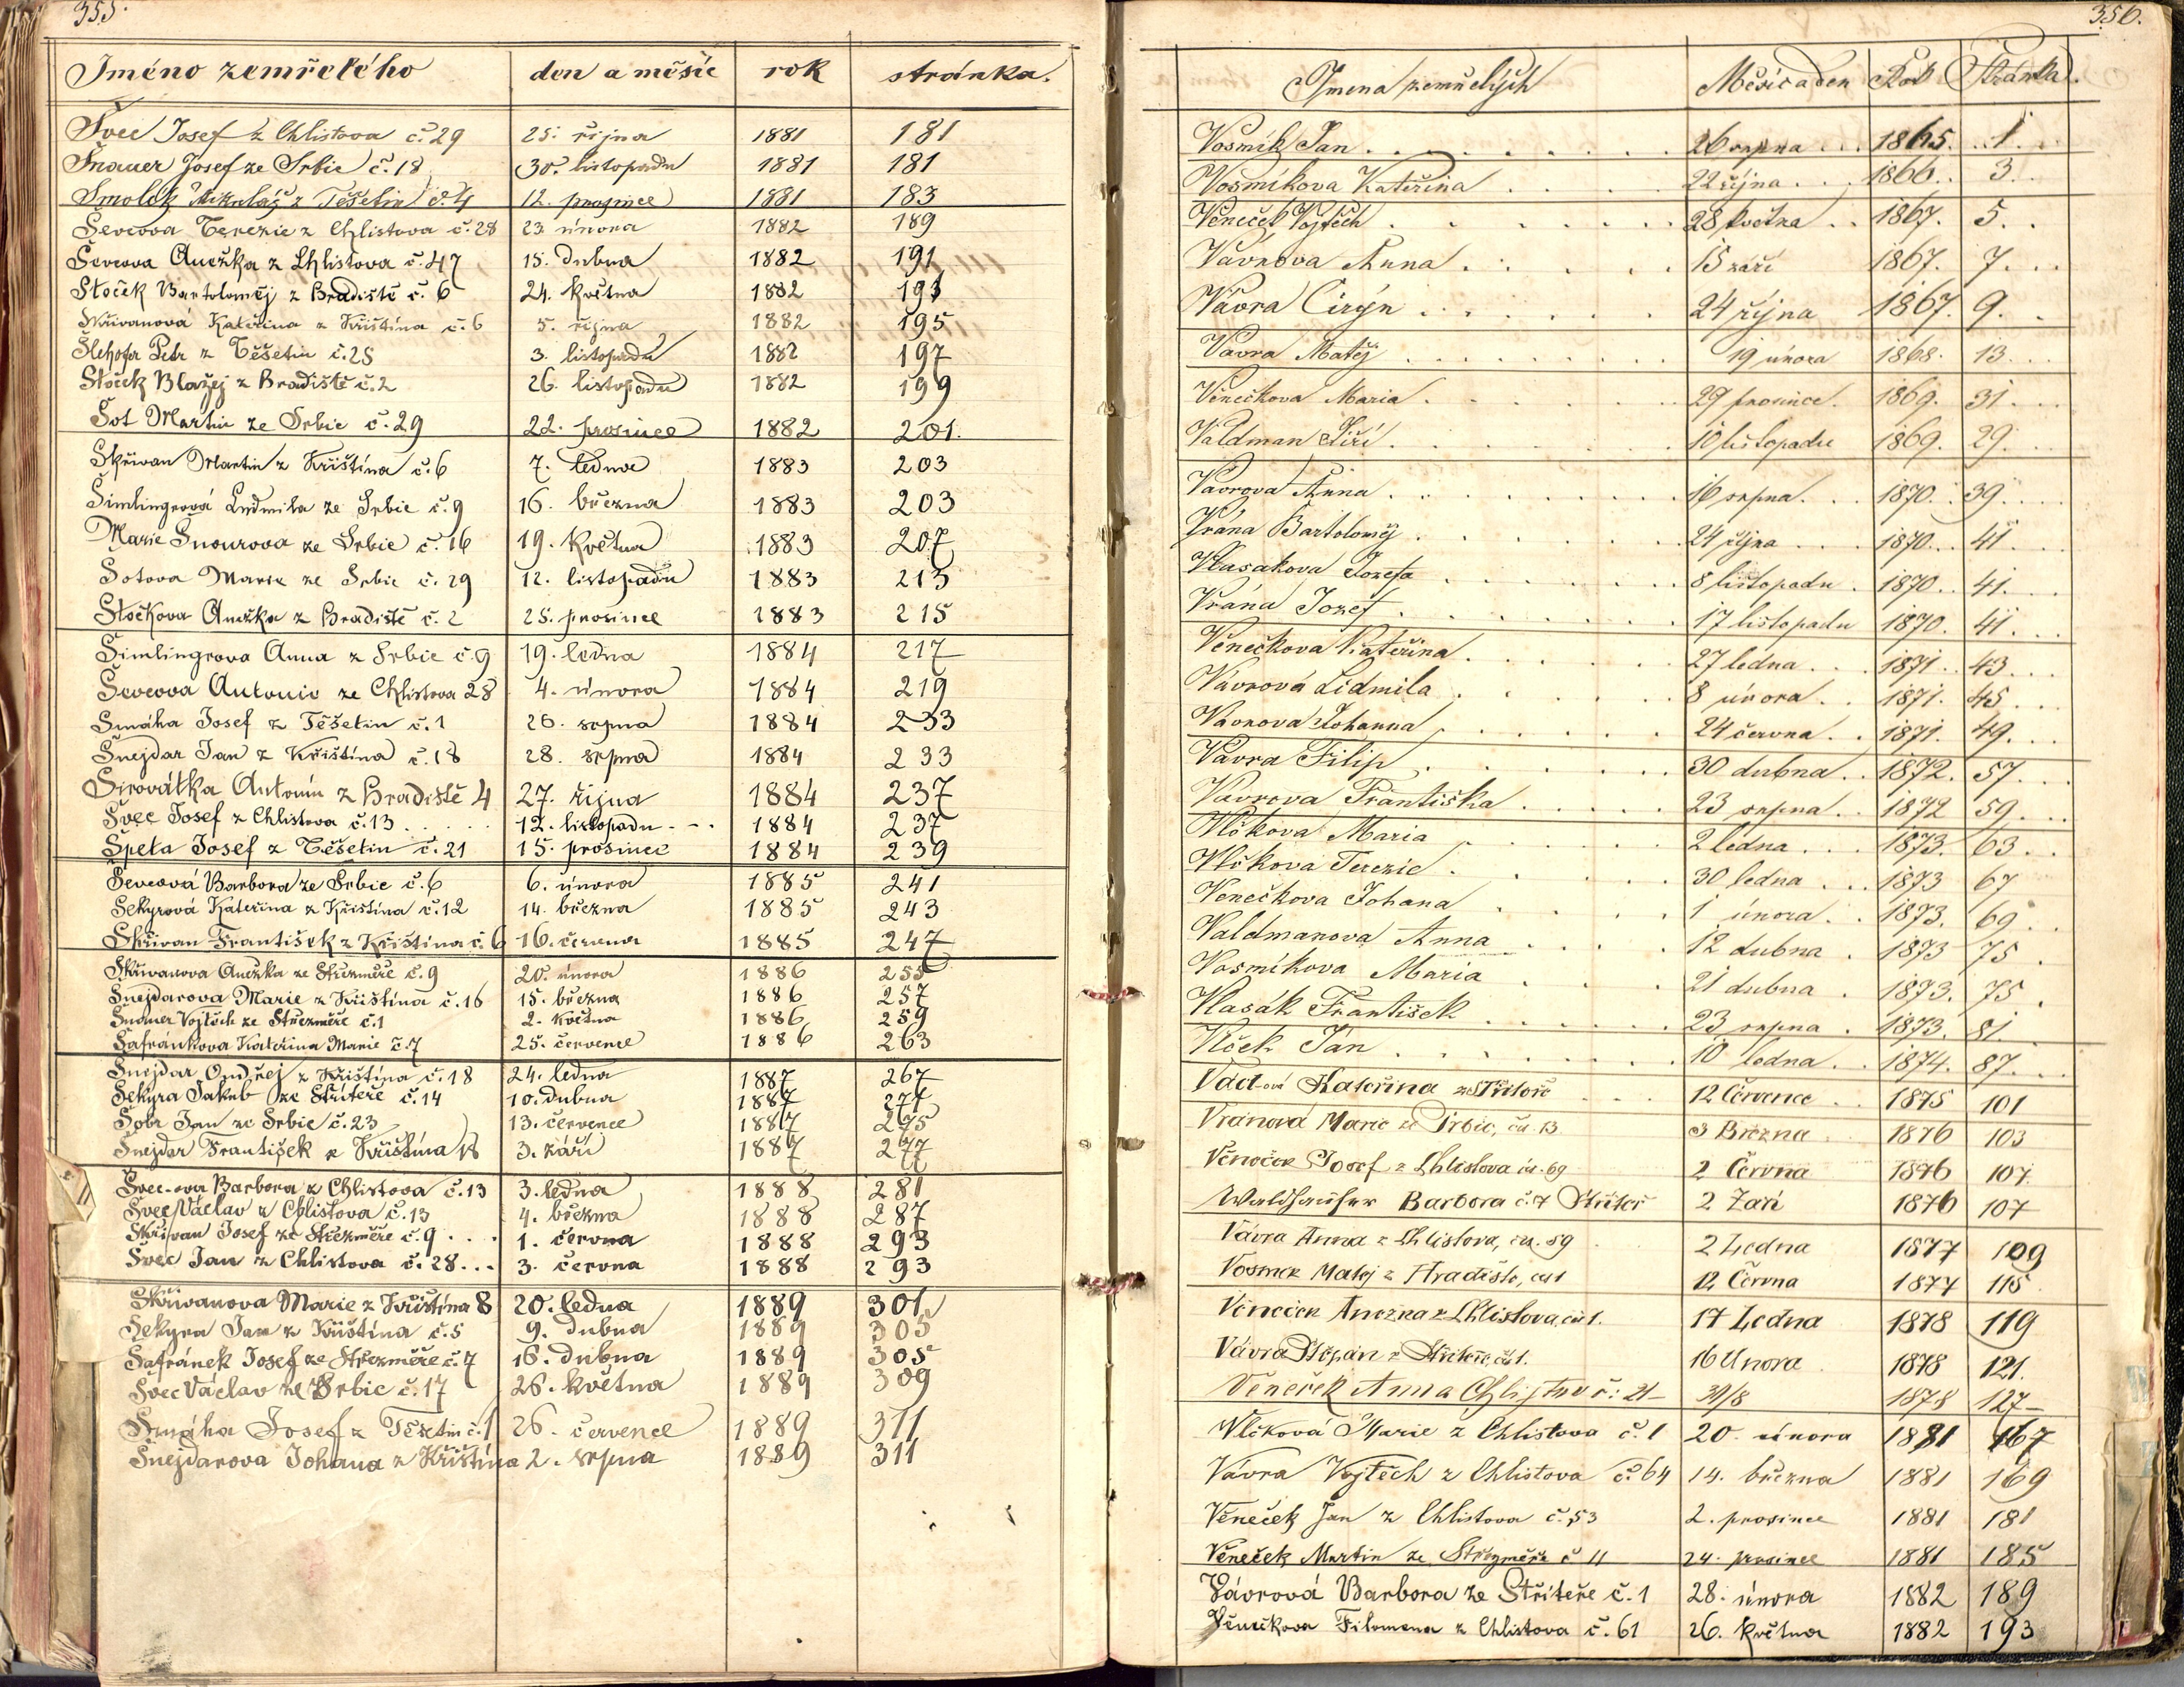 355.
Jméno zemřelého den a měsíc rok stránka.
Švec Josef z Chlistova č. 29 25. října 1881 181
Šnauer Josef ze Srbic č. 18 30. listopadu 1881 181
Smolek Mikuláš z Těšetin č. 4 12. prosince 1881 183
Ševcova Terezie z Chlistova č. 28 23. února 1882 189
Ševcova Anežka z Chlistova č. 47 15. dubna 1882 191
Stoček Bartoloměj z Hradiště č. 6 24. května 1882 193
Skřivanová Kateřina z Křištína č. 6 5. října 1882 195
Šlehofer Petr z Těšetin č. 25 3. listopadu 1882 197
Stoček Blažej z Hradiště č. 2 26. listopadu 1882 199
Šot Martin ze Srbic č. 29 22. prosince 1882 201.
Skřivan Martin z Křištína č. 6 7. ledna 1883 203
Šimlingrová Ludmila ze Srbic č. 9 16. března 1883 203
Marie Šnourova ze Srbic č. 16 19. května 1883 207
Šotova Marie ze Srbic č. 29 12. listopadu 1883 213
Stočkova Anežka z Hradiště č. 2 25. prosince 1883 215
Šimlingrova Anna z Srbic č. 9 19. ledna 1884 217
Ševcova Antonie ze Chlistova 28 4. února 1884 219
Smáha Josef z Těšetin č. 1 26. srpna 1884 233
Šnejdar Jan z Křištína č. 18 28. srpna 1884 233
Sirovátka Antonín z Hradiště 4 27. října 1884 237
Švec Josef z Chlistova č. 13 . . . . . 12. listopadu . - . 1884 237
Špeta Josef z Těšetin č. 21 15. prosince 1884 239
Ševcová Barbora ze Srbic č. 6 6. února 1885 241
Sekyrová Kateřina z Křištína č. 12 14. března 1885 243
Skřivan František z Křištína č. 6 16. června 1885 247
Skřivanova Anežka ze Střezměře č. 9 20. února 1886 255
Šnejdarova Marie z Křištína č. 16 15. března 1886 257
Šnauer Vojtěch ze Střezměře č. 1 2. května 1886 259
Šafránkova Kateřina Marie č. 7 25. července 1886 263
Šnejdar Ondřej z Křištína č. 18 24. ledna 1887 267
Sekyra Jakub ze Střiteře č. 14 10. dubna 1887 271
Šobr Jan ze Srbic č. 23 13. července 1887 275
Šnejdar František z Křištína 18 3. září 1887 277
Švec-ova Barbora z Chlistova č. 13 3. ledna 1888 281
Švec Václav z Chlistova č. 13 4. března 1888 287
Skřivan Josef ze Střezměře č. 9 . . . 1. června 1888 293
Švec Jan z Chlistova č. 28 . . . 3. června 1888 293
Skřivanova Marie z Křištína 8 20. ledna 1889 301
Sekyra Jan z Křištína č. 5 9. dubna 1889 305
Šafránek Josef ze Střezměře č. 7 16. dubna 1889 305
Švec Václav ze Srbic č. 17 26. května 1889 309
Smáha Josef z Těšetin č. 1 26. července 1889 311
Šnejdarova Johana z Křištína 2. srpna 1889 311
356.
Jmena zemřelých Měsíc a den Rok Stránka.
Vosmik Jan . . . . . . . . . 26 srpna . . . 1865. . . 1. . .
Vosmíkova Kateřina . . . . 22 října . . . 1866. . 3. .
Věneček Vojtěch . . . . . . 28 května . . 1867. 5. .
Vávrova Anna . . . . . 15 září 1867. 7. . .
Vávra Ciryn . . . . . . . 24 října 1867. 9. .
Vávra Matěj . . . . . . . . 19 února 1868. 13. . .
Věnečkova Maria . . . . . . 29 prosince. 1869. 31. . .
Valdman Jiří . . . . . . 10 listopadu 1869. 29. . .
Vávrova Anna . . . . . . . . 16 srpna. . . 1870. . 39. . .
Vrána Bartoloměj . . . . . . . 24 října . . . 1870. . . 41. . .
Vlasakova Jozefa . . . . . . 8 listopadu . 1870. . 41. . .
Vrána Jozef . . . . . . . . 17 listopadu 1870. 41. . .
Věnečkova Kateřina . . . . . . 27 ledna . . . 1871. . 43. . .
Vávrová Lidmila . . . . . . 8 února . . 1871. 45. . .
Vávrova Johanna . . . . . . 24 června . . 1871. 49. . .
Vávra Filip . . . . . . . 30 dubna . . 1872. 57. . .
Vávrova Františka . . . . . 23 srpna . . 1872 59. . .
Vlčkova Maria . . . . . . 2 ledna . . . 1873. 63. . .
Vlčkova Terezie . . . . . . 30 ledna . . . 1873 67
Věnečkova Johana . . . . . 1 února . . 1873. 69. . .
Valdmanova Anna . . . . 12 dubna . 1873 75 .
Vosmíkova Maria . . . . 21 dubna . 1873. 75 .
Vlasák František . . . . . . 23 srpna . 1873. 81. . .
Vlček Jan . . . . . . . 10 ledna . . 1874. 87. . .
Václ-ová Kateřina ze Střitoře . . . 12 Července . . 1875 101
Vranova Marie ze Srbic, čn. 13 3 Března . 1876 103
Věneček Josef z Chlistova čn. 69 2 Června 1876 107
Waldhauser Barbora č. 7 Střiteř 2 Září 1876 107
Vávra Anna z Chlistova, čn. 59 2 Ledna 1877 109
Vosmek Matěj z Hradiště, čn 1 12 Června 1877 115
Věneček Anežka z Chlistova, čn 1. 17 Ledna 1878 119
Vávra Štěpán z Střiteře, čn 1. 16 Února 1878 121.
Věneček Anna Chlistov č: 21 - 30/8 1878 127 -
Vlčková Marie z Chlistova č. 1 20. února 1881 167
Vávra Vojtěch z Chlistova č. 64 14. března 1881 169
Věneček Jan z Chlistova č. 53 2. prosince 1881 181
Věneček Martin ze Střezměře č 11 24. prosince 1881 185
Vávrová Barbora ze Střiteře č. 1 28. února 1882 189
Věnečkova Filomena z Chlistova č. 61 26. května 1882 193